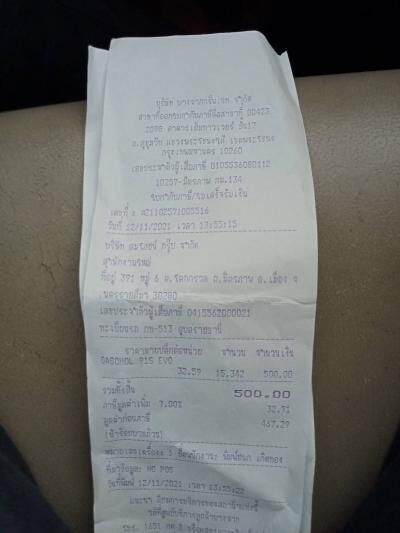 บริษัท บางจากกรีนเนท จำกัด
สาขาที่ออกใบกำกับภาษีคือสาขาที่ 00423
2098 อาคารเอ็มทาวเวอร์ ชั้น7
ถ.สุขุมวิท แขวงพระโขนงใต้ เขตพระโขนง
กรุงเทพมหานคร 10260
เลขประจำตัวผู้เสียภาษี 0105536080112
10257-มิตรภาพ กม.134
ใบกำกับภาษี/ใบเสร็จรับเงิน
เลขที่ : A21102571005516
วันที่ 12/11/2021 เวลา 13:55:15
บริษัท กรุ๊ป จำกัด
สำนักงานใหญ่
ที่อยู่ 391 หมู่ 6 ถ.มิตรภาพ อ.เมือง จ
.นครราชสีมา 30280
เลขประจำตัวผู้เสียภาษี 0415562000021
ทะเบียนรถ กท-513 อุบลราชธานี
ราคาขายปลีกต่อหน่วย จำนวน จำนวนเงิน
GASOHOL 91S EVO
32.59 15.342 500.00
รวมทั้งสิ้น 500.00
ภาษีมูลค่าเพิ่ม 7.00% 32.71
มูลค่าก่อนภาษี 467.29
หมายเลขเครื่อง: 1 ชื่อพนักงาน:
ที่มาข้อมูล: NO POS
วันที่พิมพ์ 12/11/2021 เวลา 13:55:22
แนะนำ ติชมการบริการของสถานีแห่งนี้
โทร. 1651 กด 2